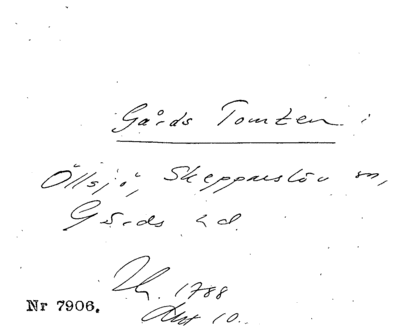 Gårds Tomten i
Öllsjö, Skepparslöv sn,
Gärds hd.
1788
Nr 7906.
Akt 10.